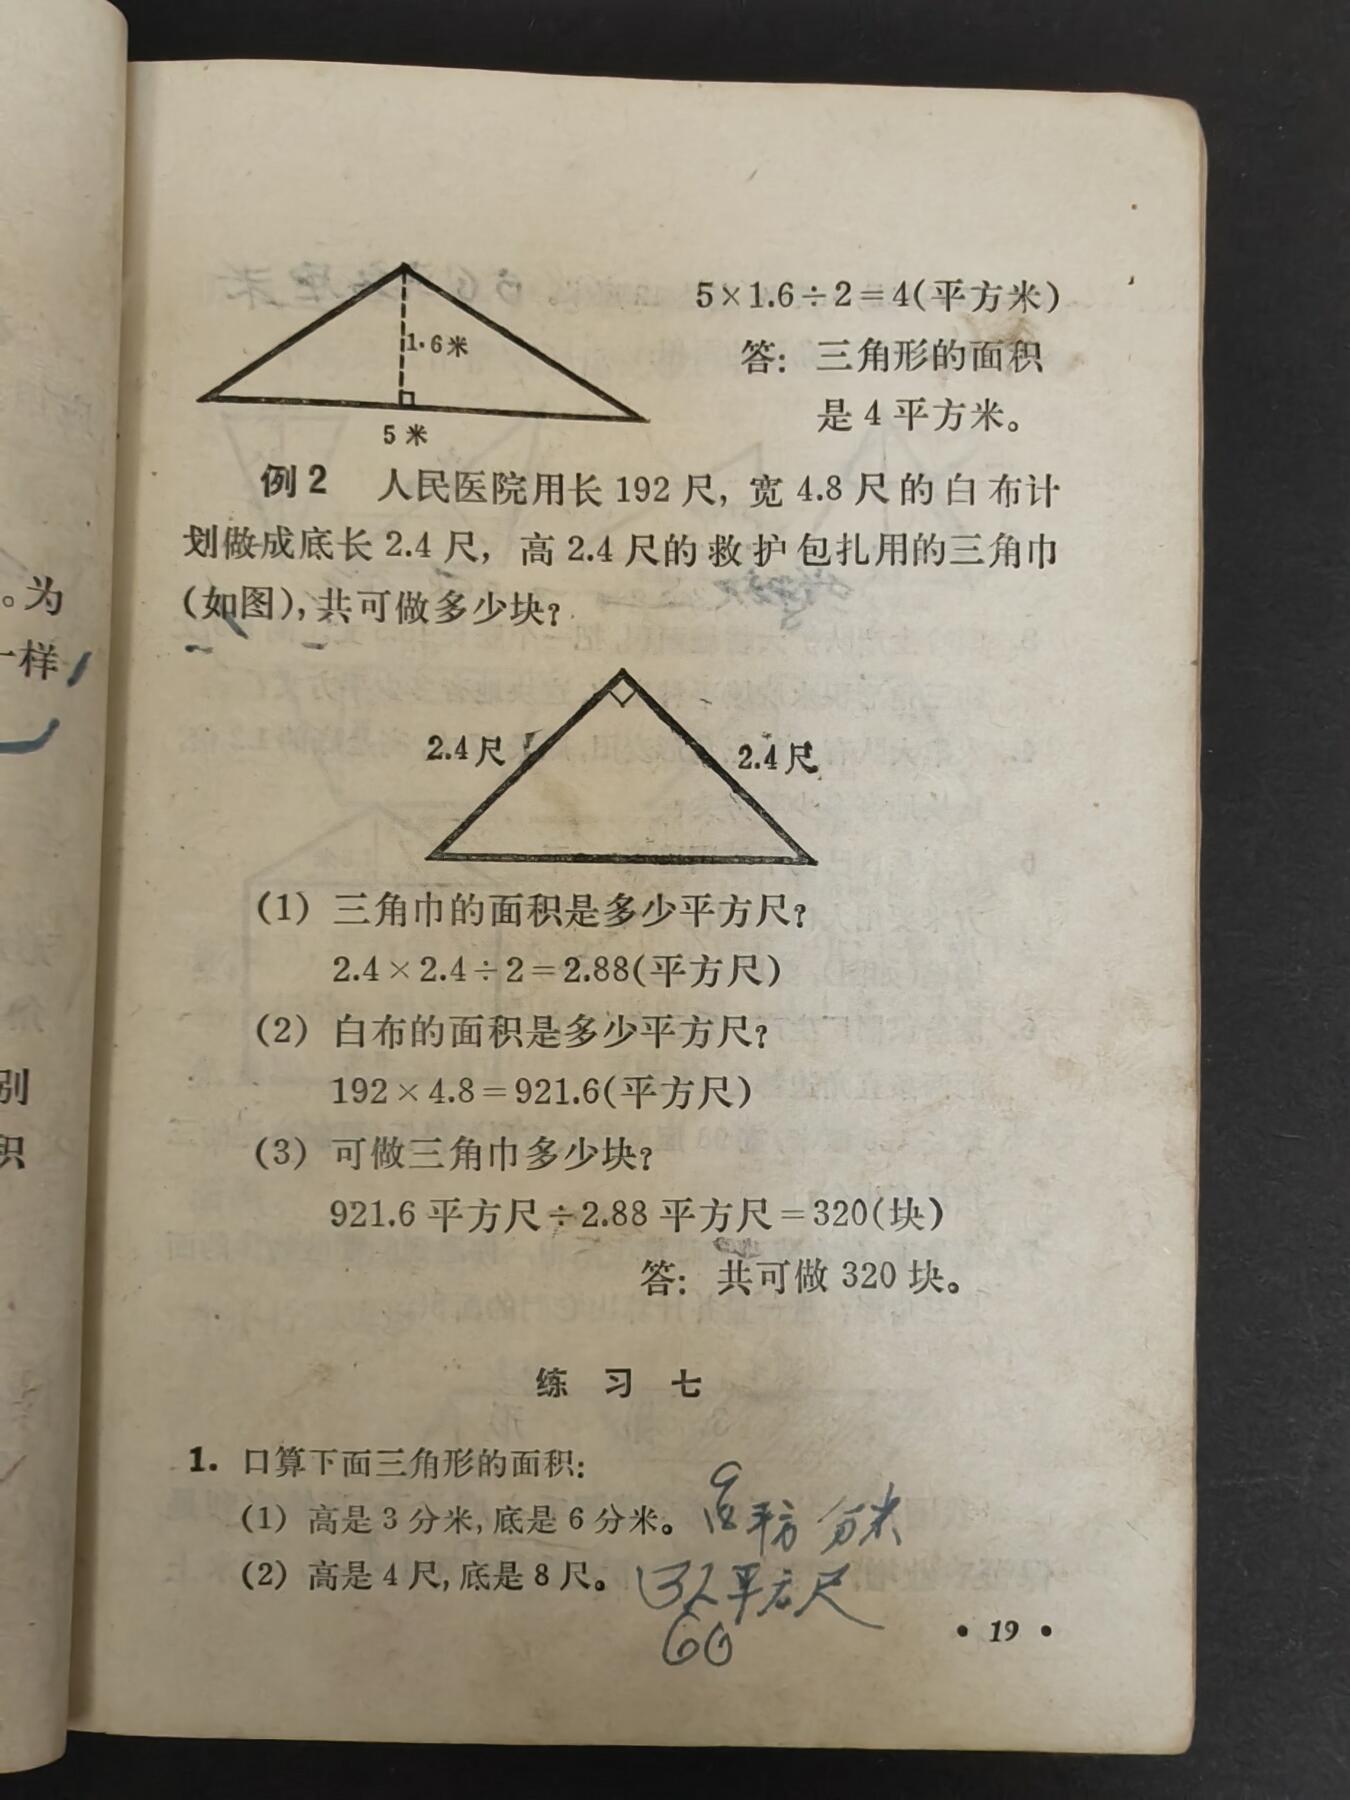 5×1.6÷2=4(平方米)
1.6米
答：三角形的面积
是4平方米。
5米
例2 人民医院用长192尺，宽4.8尺的白布计
划做成底长2.4尺，高2.4尺的救护包扎用的三角巾
(如图)，共可做多少块？
2.4尺 2.4尺
(1) 三角巾的面积是多少平方尺？
2.4×2.4÷2=2.88(平方尺)
(2) 白布的面积是多少平方尺？
192×4.8=921.6(平方尺)
(3) 可做三角巾多少块？
921.6平方尺÷2.88平方尺=320(块)
答：共可做320块。
练习七
1. 口算下面三角形的面积：
(1) 高是3分米，底是6分米。 9平方分米
(2) 高是4尺，底是8尺。 平方尺
60
• 19 •
。为
一样
别
积